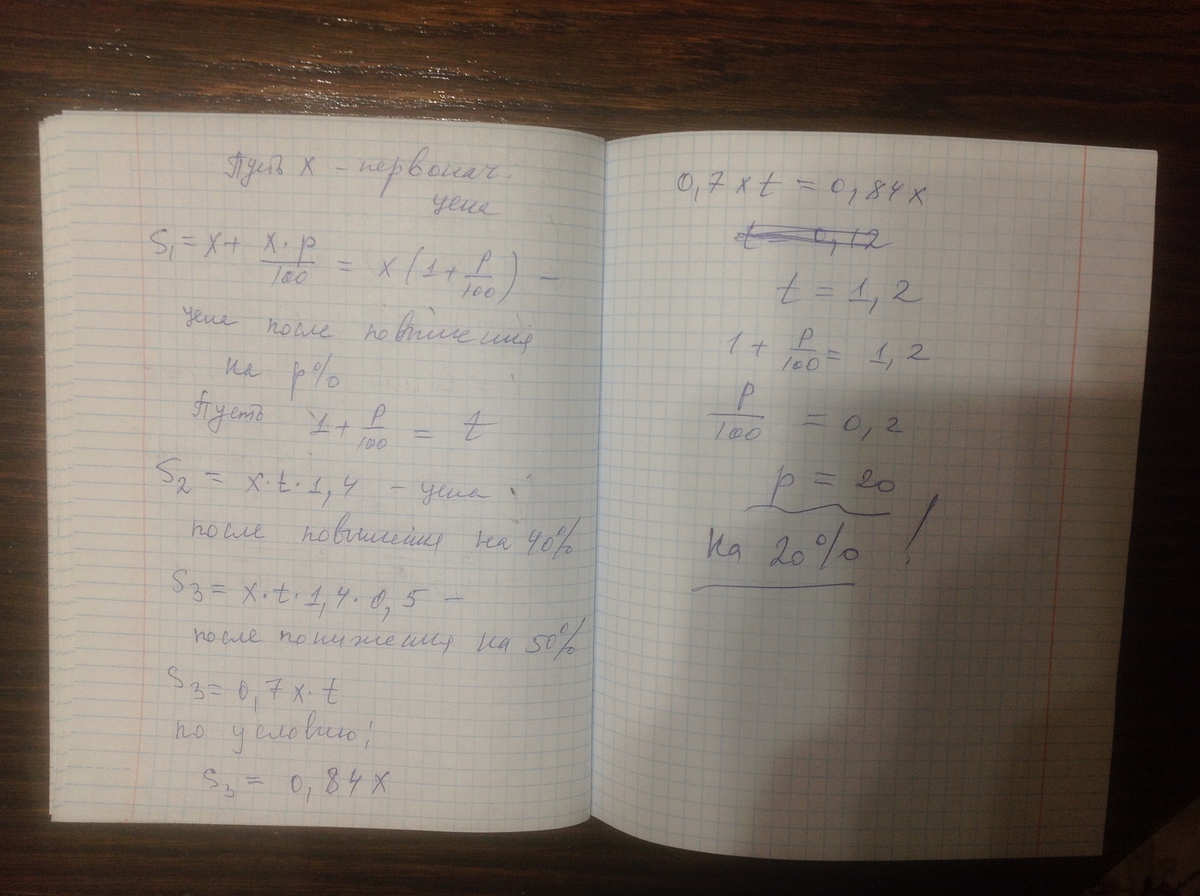 Пусть x – первонач.
цена
S₁ = x + x·p/100 = x(1 + p/100) –
цена после повышения
на p%
Пусть 1 + p/100 = t
S₂ = x·t·1,4 – цена
после повышения на 40%
S₃ = x·t·1,4·0,5 –
после понижения на 50%
S₃ = 0,7x·t
по условию:
S₃ = 0,84x
0,7xt = 0,84x
t = 0,12
t = 1,2
1 + p/100 = 1,2
p/100 = 0,2
p = 20
На 20% !